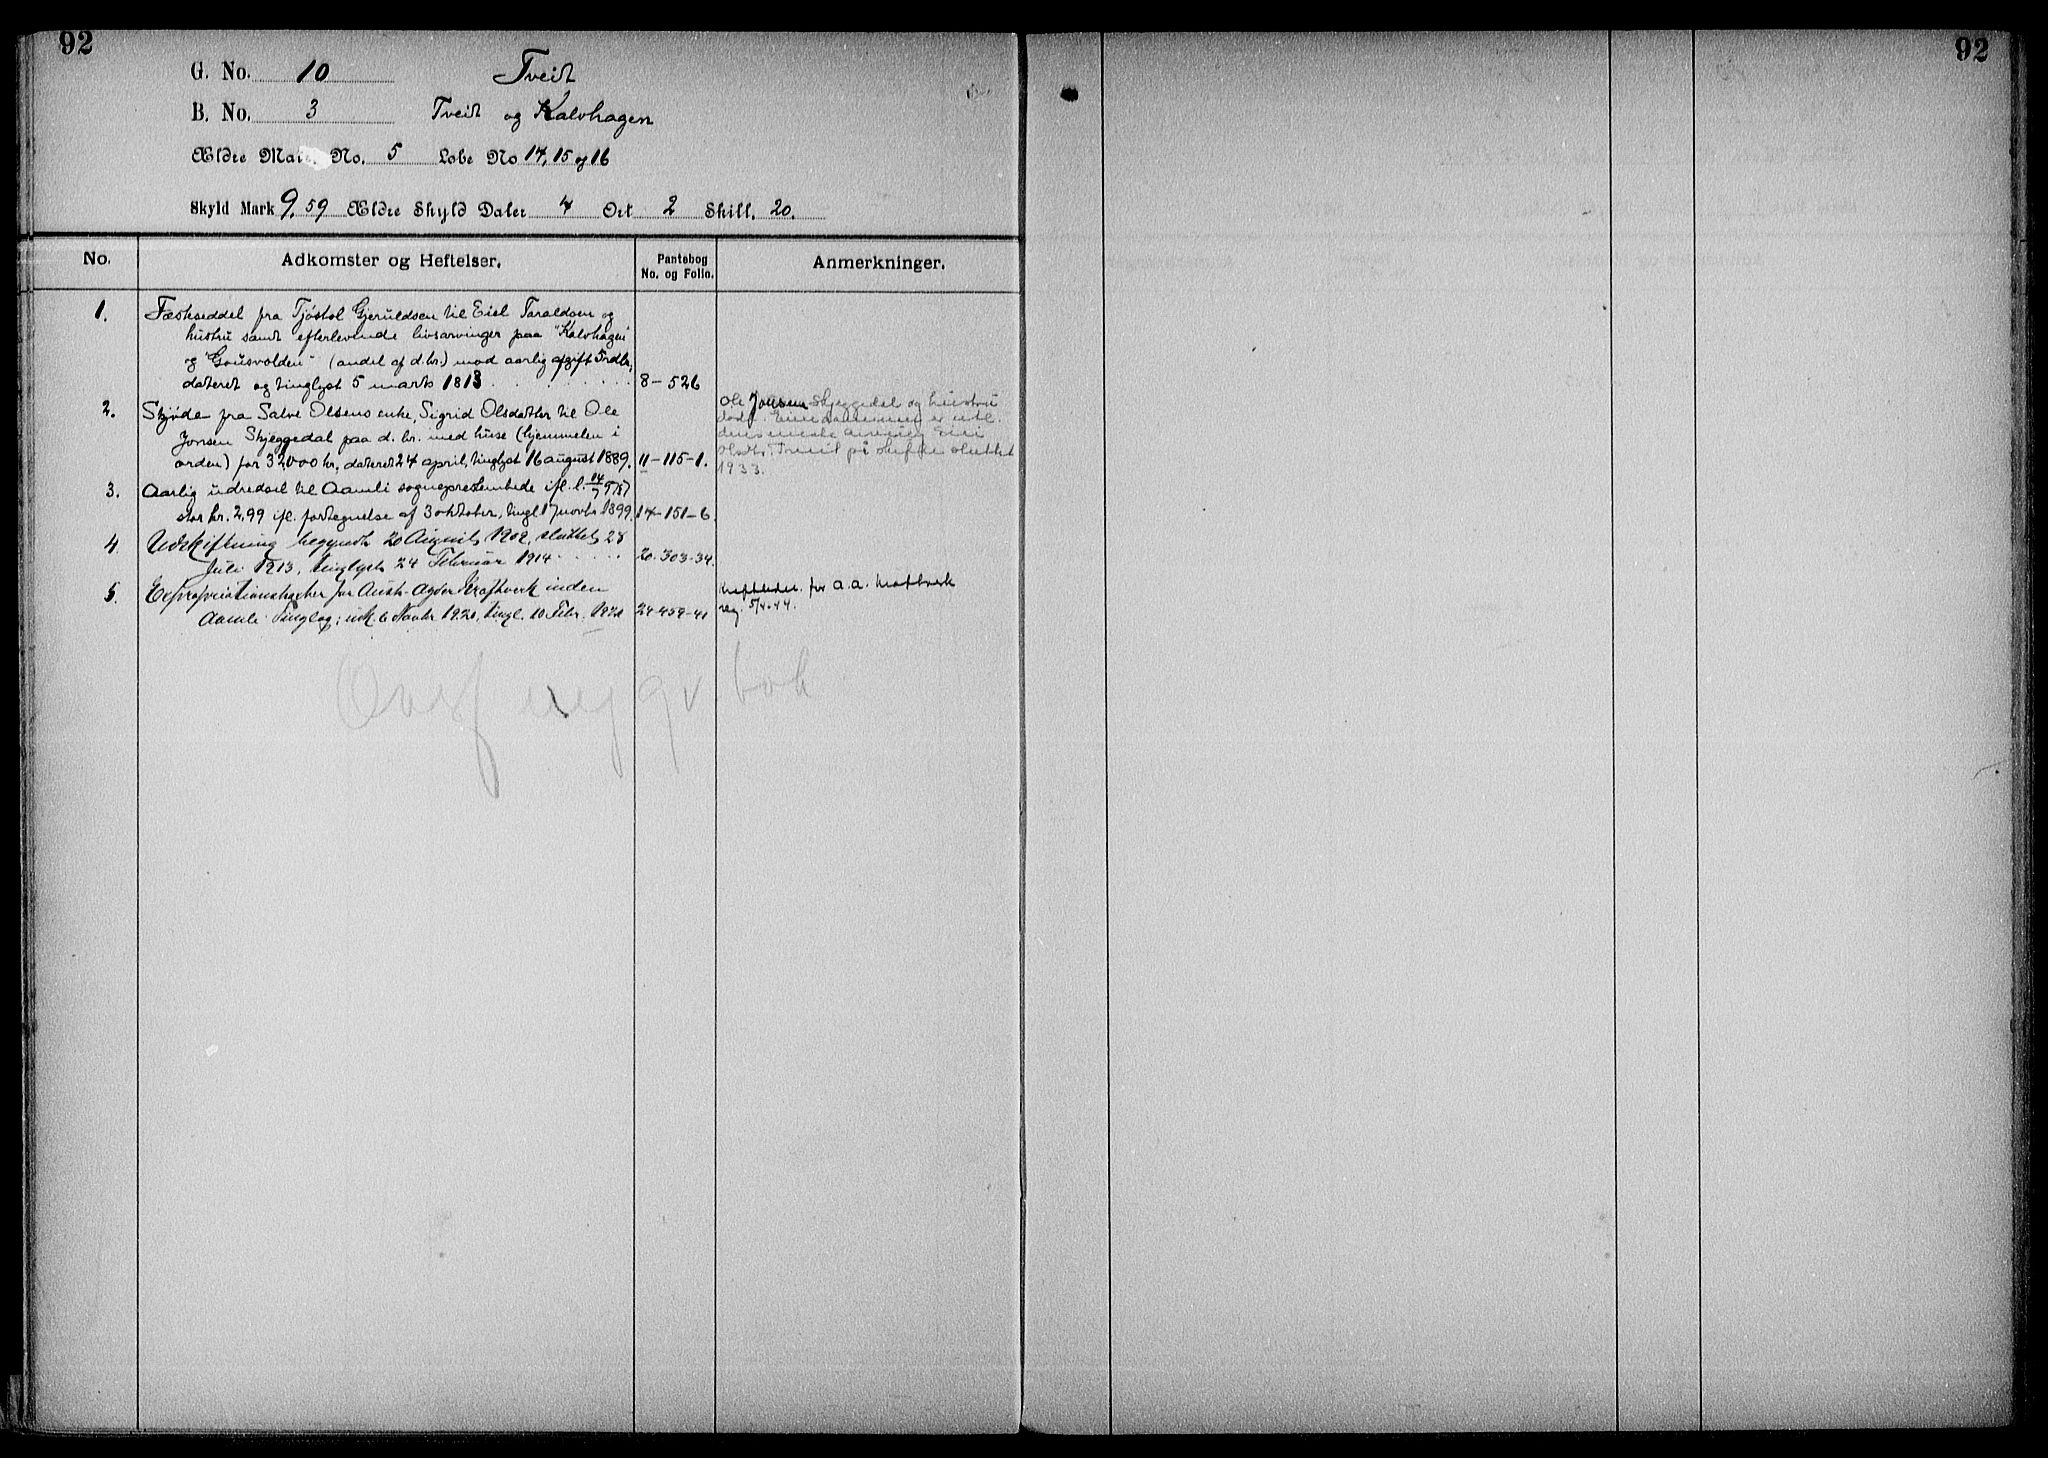 92
G. No. 10 Tveit
B. No. 3 Tveit og Kalvhagen
Ældre Matr. No. 5 Løbe No 14, 15 og 16
Skyld Mark 9,59 Ældre Skyld Daler 4 Ort 2 Skill. 20.
No. Adkomster og Heftelser. Pantebog No. og Folio. Anmerkninger.
1. Fæsteseddel fra Tjøstol Gjeruldsen til Eiel Taraldsen og
hustru samt efterlevende livsarvinger paa "Kalvhagen"
og "Gousvolden" (andel af d. br.) mod aarlig afgift 5 rdlr,
dateret og tinglyst 5 marts 1813 8-526
2. Skjøde fra Salve Olsens enke, Sigrid Olsdatter til Ole
Jonsen Skjeggedal paa d. br. med huse (hjemmelen i
orden) for 32000 kr, dateret 24 april, tinglyst 16 august 1889. 11-115-1.
Ole Jonsen Skjeggedal og hustru
døde.
Tveit på skifte sluttet
1933.
3. Aarlig udredsel til Aamli sogneprestembede ifl. l. 14/7
stor kr. 2,99 ifl. fortegnelse af 3 oktober, tingl 17 novbr 1899. 14-151-6.
4. Udskiftning begyndt 20 August 1902, sluttet 28
Juli 1913, tinglyst 24 Februar 1914 20-303-34.
5. Expropriationshefter for Aust-Agder Kraftverk inden
Aamli Tinglag; 6 Novbr 1920, tingl. 10 Febr. 24-459-41
for A.A. Kraftverk
reg. 5/4-44.
Overf ny gr. bok
92